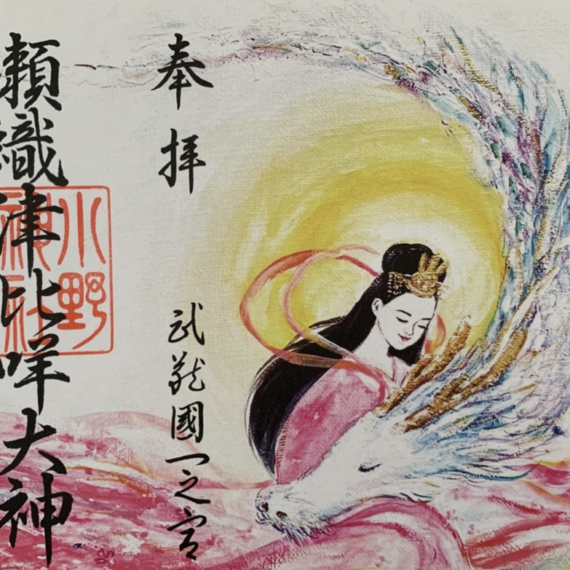 奉拝
武蔵國一之宮
瀬織津比咩大神
小野神社